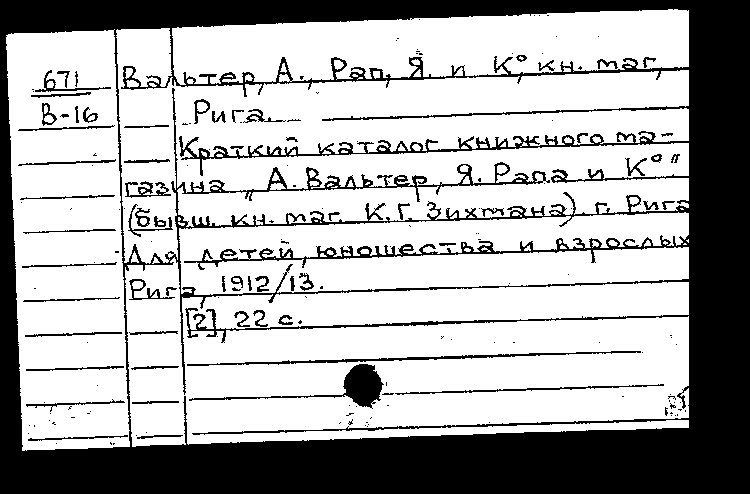 671 Вальтер, А., Рап, Я. и К°, кн. маг,
В-16 Рига.
Краткий каталог книжного ма-
газина „А. Вальтер, Я. Рапа и К°"
(бывш. кн. маг. К.Г. Зихмана). г. Рига
Для детей, юношества и взрослых
Рига, 1912/13.
[2], 22 с.